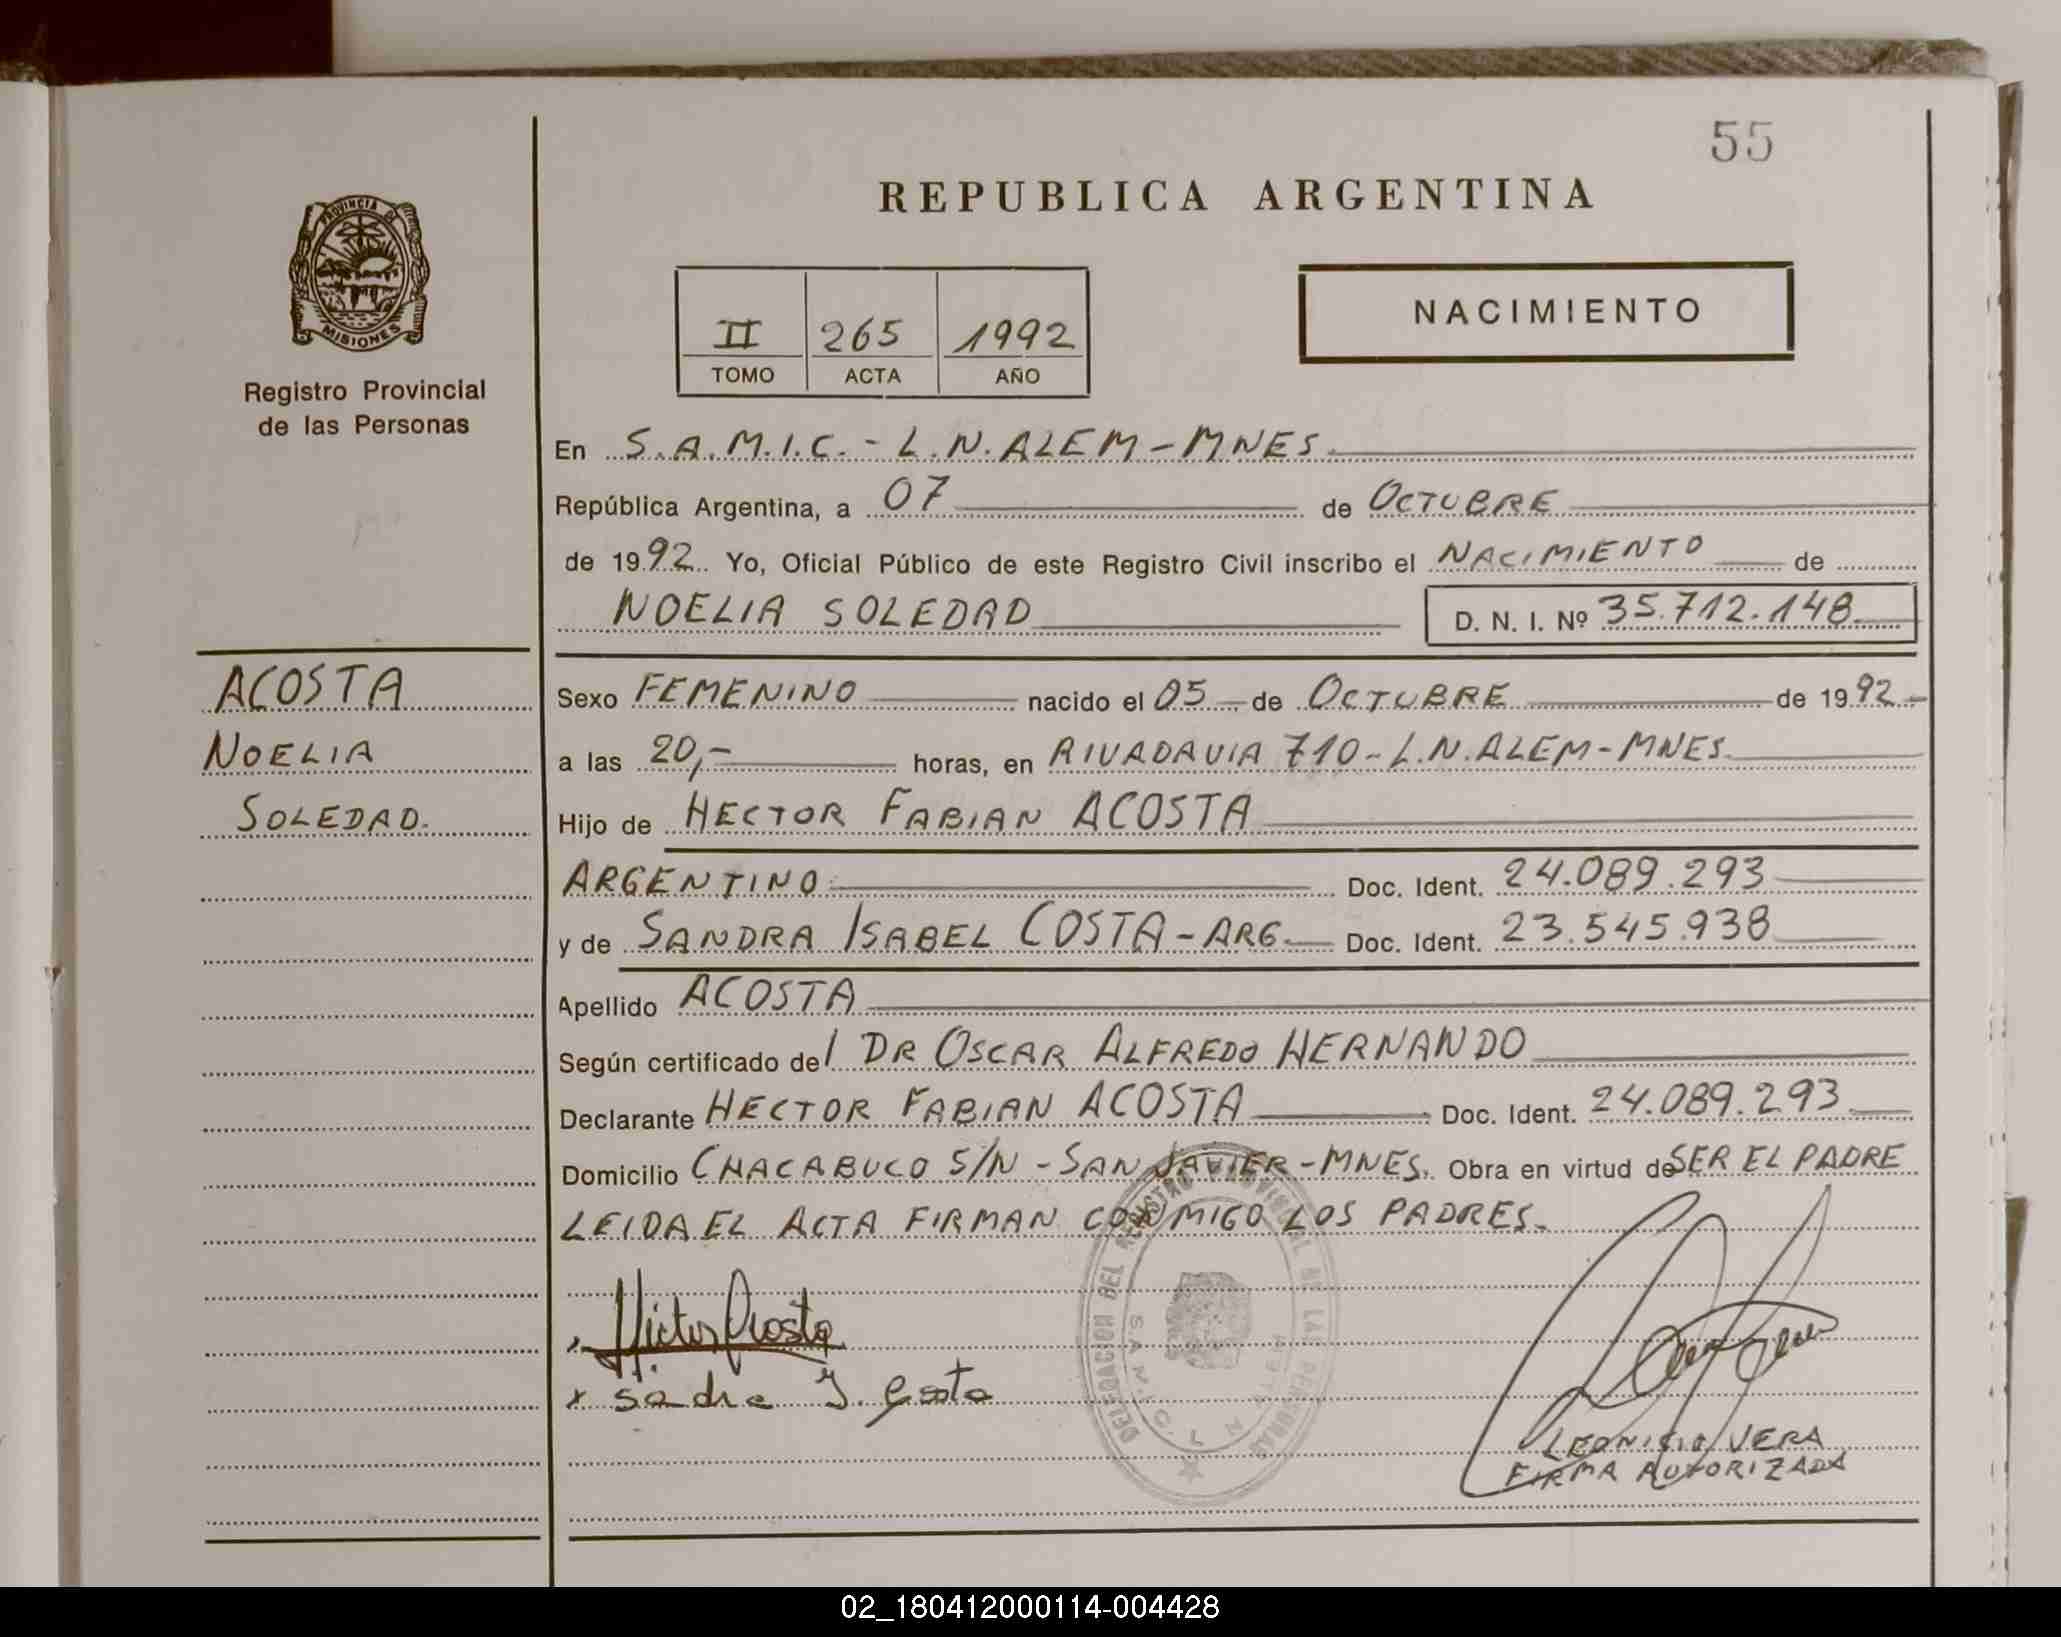 55
REPUBLICA ARGENTINA
PROVINCIA DE
MISIONES
Registro Provincial
de las Personas
II 265 1992
TOMO ACTA AÑO
NACIMIENTO
En S.A.M.I.C.- L.N.ALEM-MNES
República Argentina, a 07 de OCTUBRE
de 1992 Yo, Oficial Público de este Registro Civil inscribo el NACIMIENTO de
NOELIA SOLEDAD D. N. I. Nº 35.712.148
ACOSTA
NOELIA
SOLEDAD.
Sexo FEMENINO nacido el 05 de OCTUBRE de 1992.-
a las 20,- horas, en RIVADAVIA 710-L.N.ALEM-MNES
Hijo de HECTOR FABIAN ACOSTA
ARGENTINO Doc. Ident. 24.089.293
y de SANDRA ISABEL COSTA-ARG. Doc. Ident. 23.545.938
Apellido ACOSTA
Según certificado del DR OSCAR ALFREDO HERNANDO
Declarante HECTOR FABIAN ACOSTA Doc. Ident. 24.089.293
Domicilio CHACABUCO S/N-SAN JAVIER-MNES. Obra en virtud de SER EL PADRE
LEIDA EL ACTA FIRMAN CONMIGO LOS PADRES.
DELEGACION DEL REGISTRO PROVINCIAL DE LAS PERSONAS
Acosta
x sadra I. Costa
LEONICIO VERA
FIRMA AUTORIZADA
02_180412000114-004428